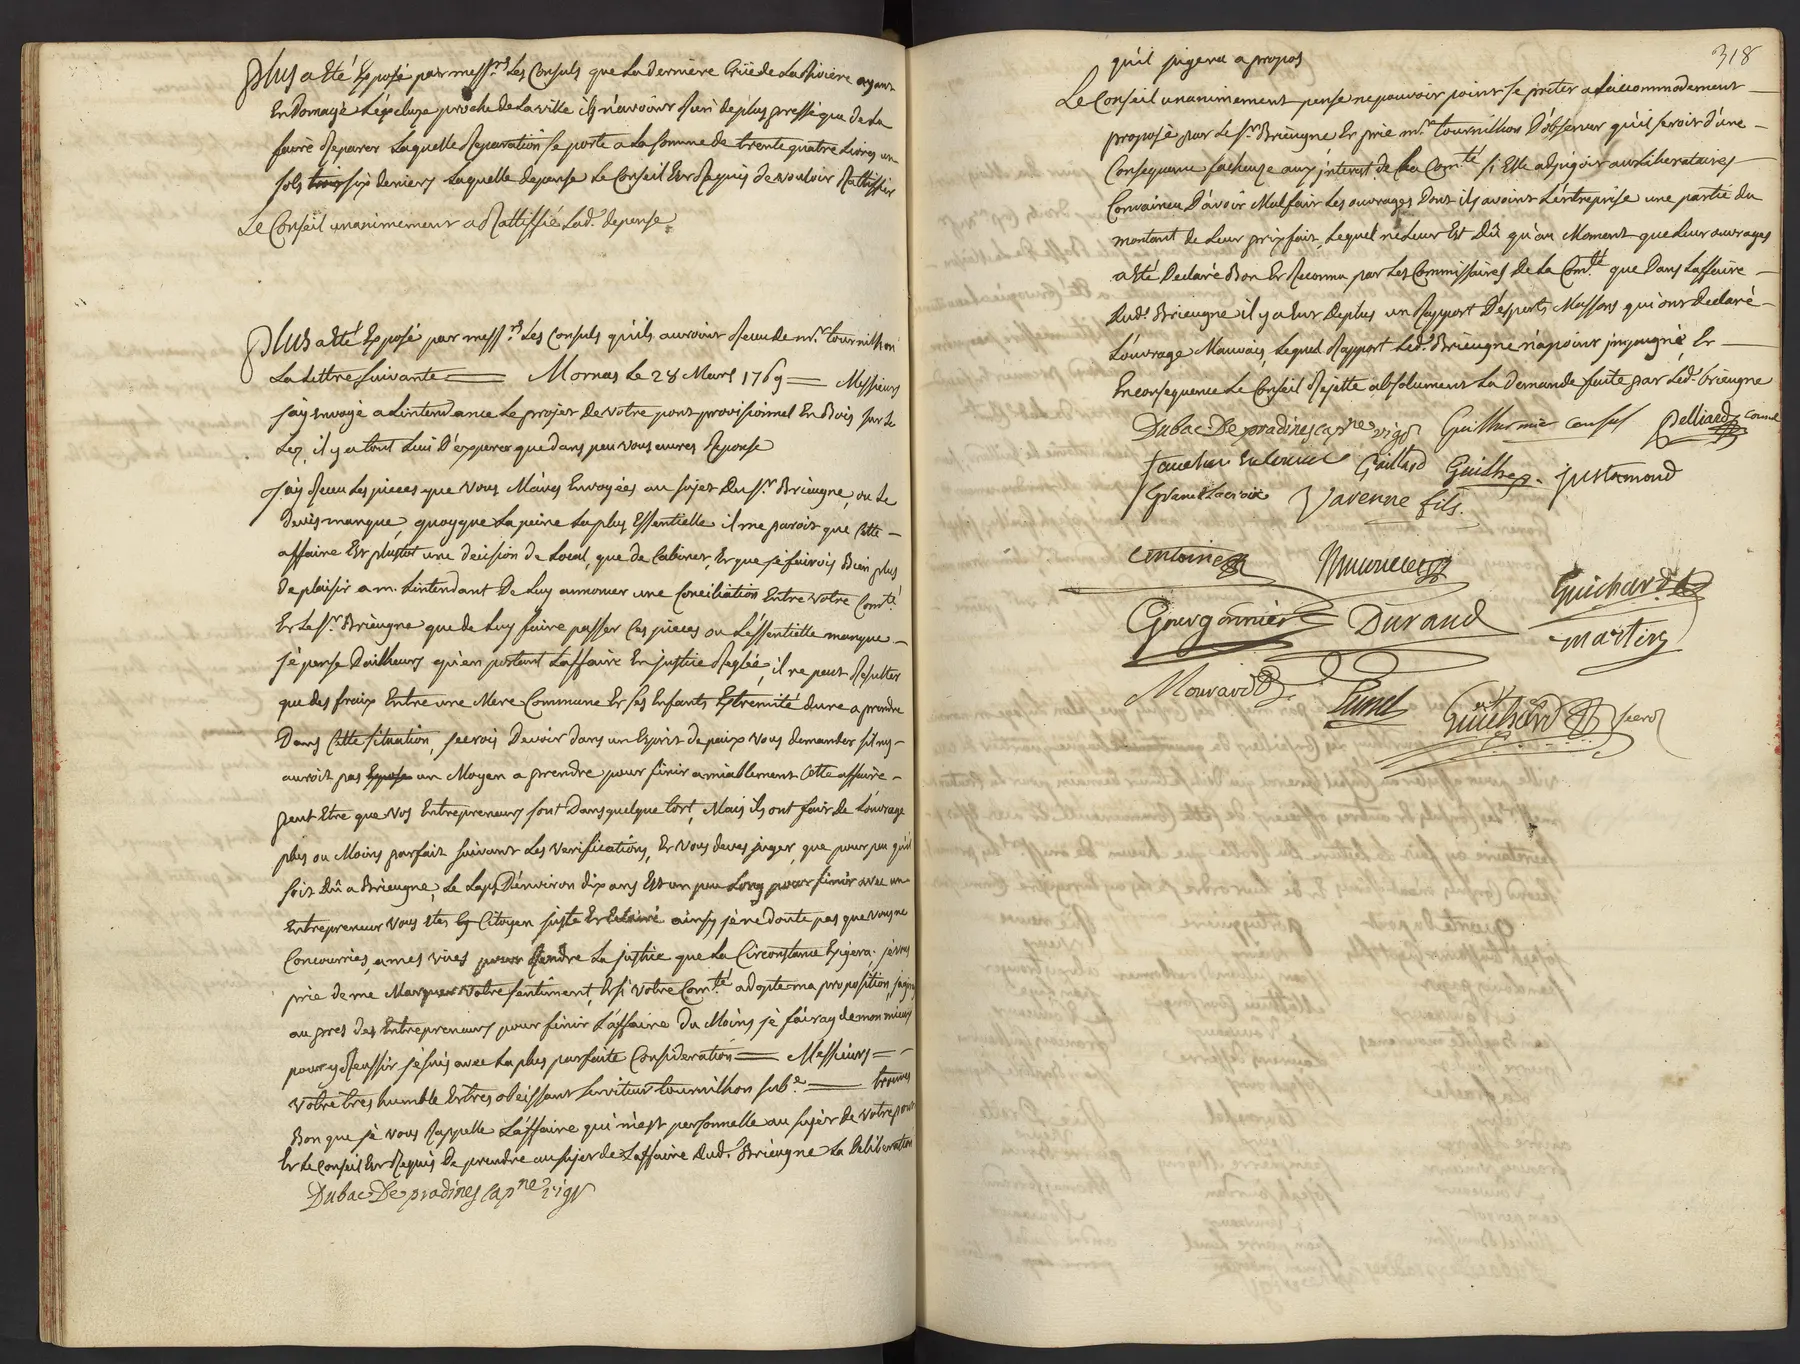 plus a Eté Exposé par mess.rs Les Consuls que La derniere Crüe de La Riviere ayant
Endomagé L'épcluze proche de La ville ils n'avoint Rien de plus pressé que de La
faire Reparer Laquelle Reparation se porte a La somme de trente quatre Livres un
sols six deniers Laquelle depense Le Conseil Est Requis de vouloir Rattiffier
Le Conseil unanimement a Rattiffié Lad.e depense
Plus a Eté Exposé par mess.rs Les Consuls qu'ils auroint Receu de mr. tournillhon
La Lettre suivante Mornas Le 28 Mars 1769 Messieurs
j'ay envoyé a L'intendance Le projet de votre pont provisionnel En Bois sur Le
Lez, il y a tout Lieu D'esperer que dans peu vous aurés Reponse
J'ay Receu Les pieces que vous M'avés Envoyées au sujet Du Sr. Brieugne, ou Le
devis manque, quoyque La peine La plus Essentielle il me paroit que Cette
affaire Est plustot une decision de Local, que de Cabinet, Et que je fairois Bien plus
de plaisir a m. Lintendant De Luy annoncer une Conciliation Entre votre Com.té
Et Le Sr. Brieugne que de Luy faire passer Les pieces ou L'éssentielle manque
je pense Dailheurs qu'en portant L'affaire En justice Reglée, il ne peut Resulter
que des fraix Entre une Mere Commune Et ses Enfants Extremité dure a prendre
Dans Cette situation, j'ecrois Devoir dans un Esprit de paix vous demander s'il ny
auroit pas un Moyen a prendre pour finir amiablement Cette affaire
peut Etre que vos Entrepreneurs sont Dans quelque tort, Mais ils ont fait de L'ouvrage
plus ou Moins parfait suivant Les verifications, Et vous devés juger, que pour peu qu'il
soit Dû a Brieugne, Le Laps D'environ dix ans Est un peu Long pour finir avec un
Entrepreneur vous etes Citoyen juste Et Eclairé ainsy je ne doute pas que vous ne
Concourriés, a mes vües pour Rendre La justice que La Circonstance Exigera. je vous
prie de me Marquer votre sentiment, Et si votre Com.té adopte ma proposition, j'agiray
au pres des Entrepreneurs pour finir L'affaire Du Moins je fairay de mon mieux
pour y Reussir je suis avec La plus parfaite Consideration Messieurs
votre tres humble Et tres obeissant serviteur tournilhon sub.e trouvés
Bon que je vous Rappelle L'affaire qui m'est personnelle au sujet de votre pont
Et Le Conseil Est Requis De prendre au sujet de L'affaire dud.t Brieugne La Deliberation
Dubac De pradines cap.ne vigr
318
qu'il jugera a propos
Le Conseil unanimement pense ne pouvoir point se préter a L'accommodement
proposé par Le Sr. Brieugne Et prie mr. tournilhon D'observer qu'il seroit d'une
Consequance facheuze aux jnterest de La Com.té si Elle adjugoit aux Liberataires
Convaincu D'avoir Mal fait Les ouvrages Dont ils avoint L'éntreprise une partie du
montant de Leur prix fait, Lequel ne Leur Est Dû qu'au Moment que Leur ouvrages
a Eté Declaré Bon Et Reconnu par Les Commissaires De La Com.té que Dans L'affaire
Dud.t Brieugne il y a Eut De plus un Rapport D'esperts Massons qui ont Declaré
L'ouvrage Mauvais, Lequel Rapport Led.t Brieugne n'a point jmpugné, Et
En consequence Le Conseil Rejette absolument La demande faite par Led.t brieugne
Dubac De pradines cap.ne vigr Guilhermie consul Pelliard consul
Gaillard Guilhe justamond
Granet Lacroix Javenne fils.
antoine
Guichard
Gourgonnier Durand martin
Mouraud
Lunel Guichard secre